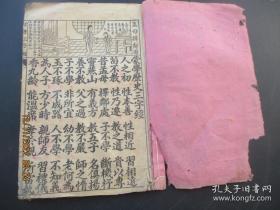 學歷史三字經
人之初 性本善 性相近 習相遠
苟不教 性乃遷 教之道 貴以專
昔孟母 擇鄰處 子不學 斷機杼
竇燕山 有義方 教五子 名俱揚
養不教 父之過 教不嚴 師之惰
子不學 非所宜 幼不學 老何為
玉不琢 不成器 人不學 不知
為人子 方少時 親師友 習禮
香九齡 能溫席 孝
孔夫子旧书网